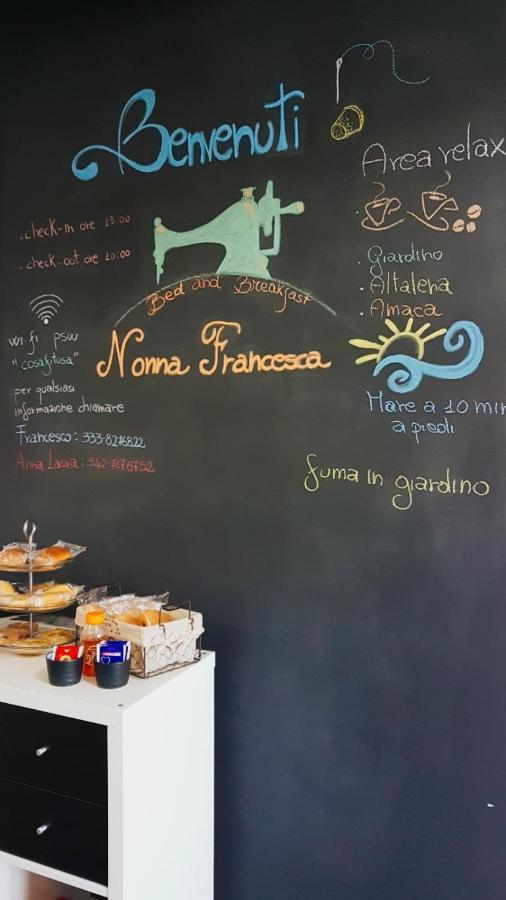 Benvenuti
. check-in ore 13:00
. check-out ore 10:00
Bed and Breakfast
Nonna Francesca
wi-fi psw
"cosafitusa"
per qualsiasi
informazione chiamare
Francesco: 333-8276822
Anna Laura: 342-7678752
Area relax
. Giardino
. Altalena
. Amaca
Mare a 10 min
a piedi
fuma in giardino